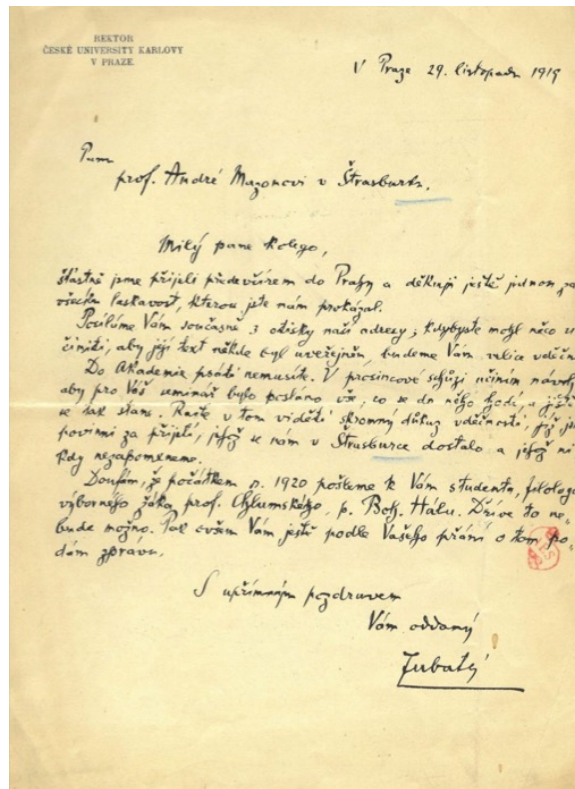 REKTOR
ČESKÉ UNIVERSITY KARLOVY
V PRAZE
V Praze 29. listopadu 1919
Panu
prof. André Mazonovi v Štrasburku.
Milý pane kolego,
šťastně jsme přijeli předevčírem do Prahy a děkuji ještě jednou za
všecku laskavost, kterou jste nám prokázal.
Posíláme Vám současně 3 otisky naší adresy; kdybyste mohl něco u-
činiti, aby její text někde byl uveřejněn, budeme Vám velice vděčni.
Do Akademie psáti nemusíte. V prosincové schůzi učiním návrh,
aby pro Váš seminář bylo posláno vše, co se do něho hodí, a jistě
se tak stane. Račte v tom viděti skromný důkaz vděčnosti, jíž jsme
povinni za přijetí, jehož se nám v Štrasburce dostalo a jehož ni-
kdy nezapomeneme.
Doufám, že počátkem r. 1920 pošleme k Vám studenta, filologa,
výborného žáka prof. Chlumského, p. Boh. Hálu. Dříve to ne-
bude možno. Pak ovšem Vám ještě podle Vašeho přání o tom po-
dám zprávu.
S upřímným pozdravem
Vám oddaný
Zubatý